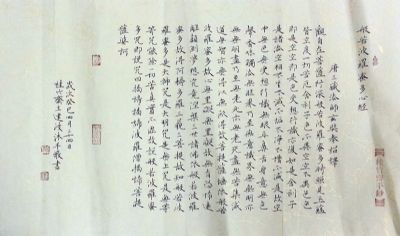 般若波羅蜜多心經
唐三藏法師玄奘奉詔譯
觀自在菩薩行深般若波羅蜜多時照見五蘊
皆空度一切苦厄舍利子色不異空空不異色色
即是空空即是色受想行識亦復如是舍利子
是諸法空相不生不滅不垢不淨不增不減是故空
中無色無受想行識無眼耳鼻舌身意無色
聲香味觸法無眼界乃至無意識界無無明亦
無無明盡乃至無老死亦無老死盡無苦集滅
道無智亦無得以無所得故菩提薩埵依般若
波羅蜜多故心無罣礙無罣礙故無有恐怖遠
離顛倒夢想究竟涅槃三世諸佛依般若波羅
蜜多故得阿耨多羅三藐三菩提故知般若波
羅蜜多是大神咒是大明咒是無上咒是無等
等咒能除一切苦真實不虛故說般若波羅蜜
多咒即說咒曰揭諦揭諦波羅揭諦波羅僧揭諦菩提
薩婆訶
歲次癸巳四月二十四日
齋主達波沐手敬書